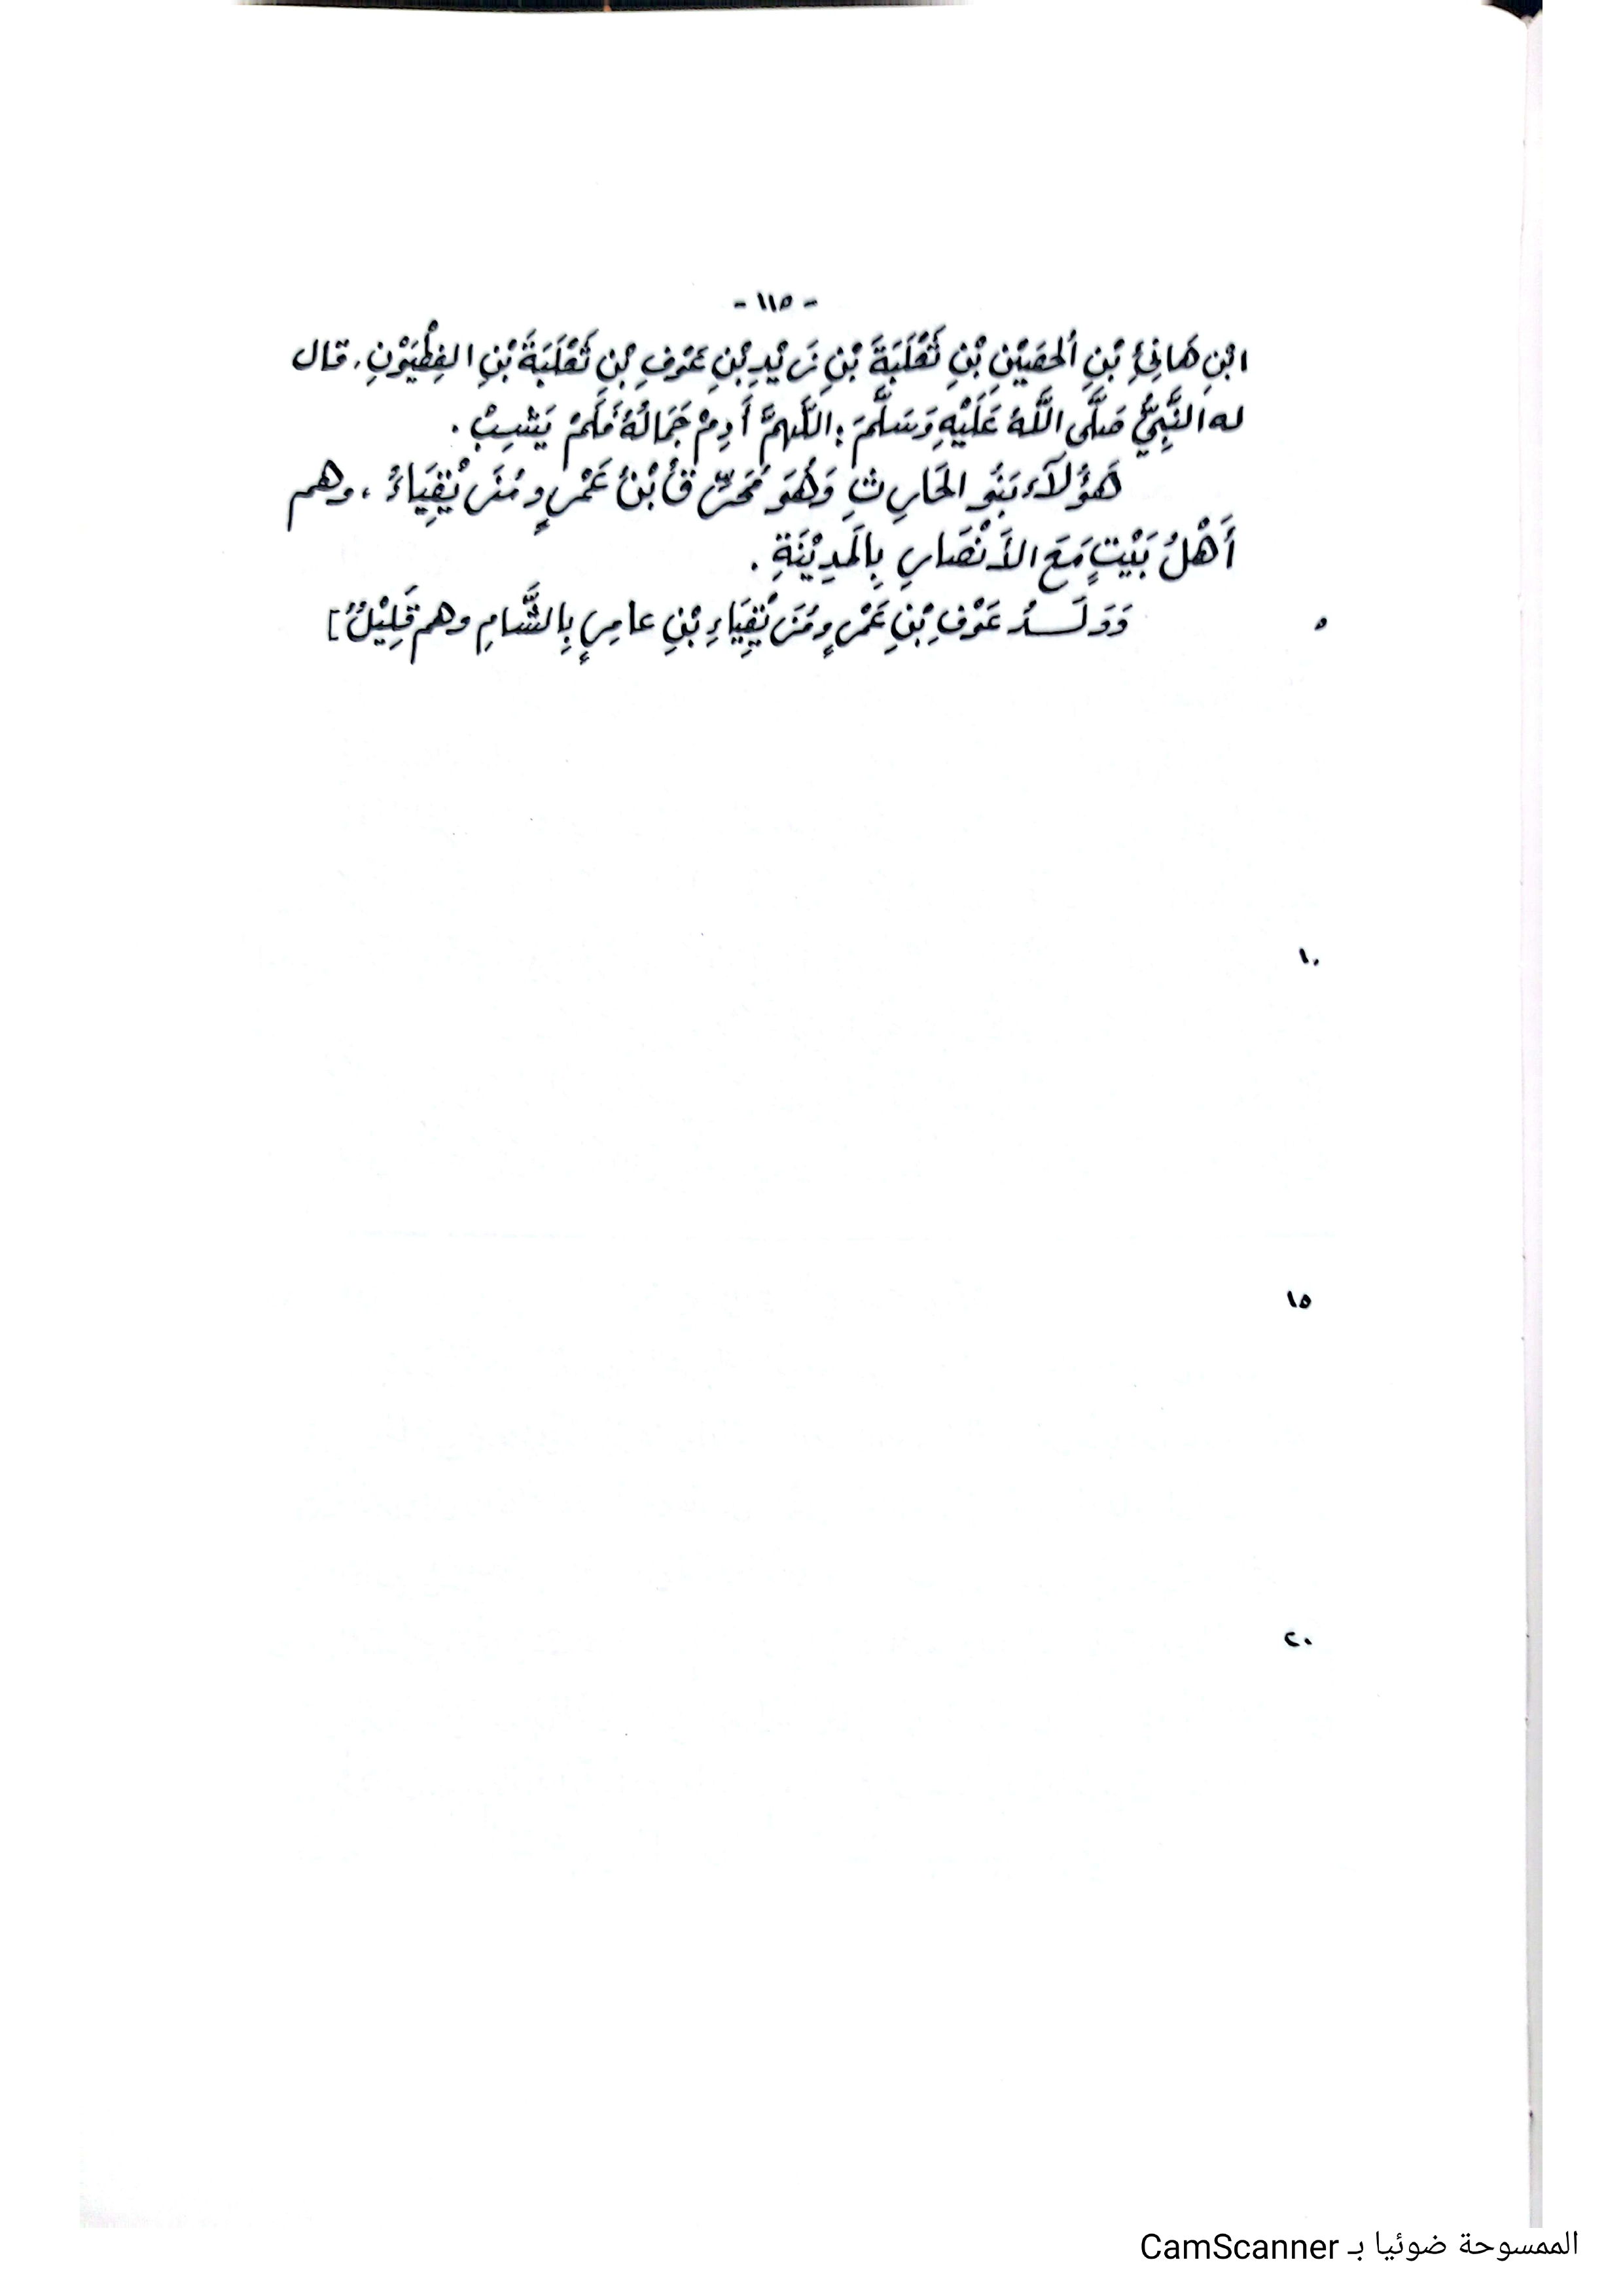 - ١١٥ -
ابْنِ هَانِئِ بْنِ الحُصَيْنِ بْنِ ثَعْلَبَةَ بْنِ زَيْدِ بْنِ عَوْفِ بْنِ ثَعْلَبَةَ بْنِ الفِطْيَوْنِ. قال
له النَّبِيُّ صَلَّى اللَّهُ عَلَيْهِ وَسَلَّمَ: اللَّهُمَّ أَدِمْ جَمَالَهُ فَلَمْ يَشِبْ.
هَؤُلَآءِ بَنُو الحَارِثِ وَهُوَ مُحَرِّقُ بْنُ عَمْرٍو مُزَيْقِيَاءُ، وهم
أَهْلُ بَيْتٍ مَعَ الأَنْصَارِ بِالمَدِيْنَةِ.
٥ وَوَلَـــدُ عَوْفِ بْنِ عَمْرٍو مُزَيْقِيَاءِ بْنِ عامِرٍ بِالشَّامِ وهم قَلِيْلٌ]
١٠
١٥
٢٠
الممسوحة ضوئيا بـ CamScanner